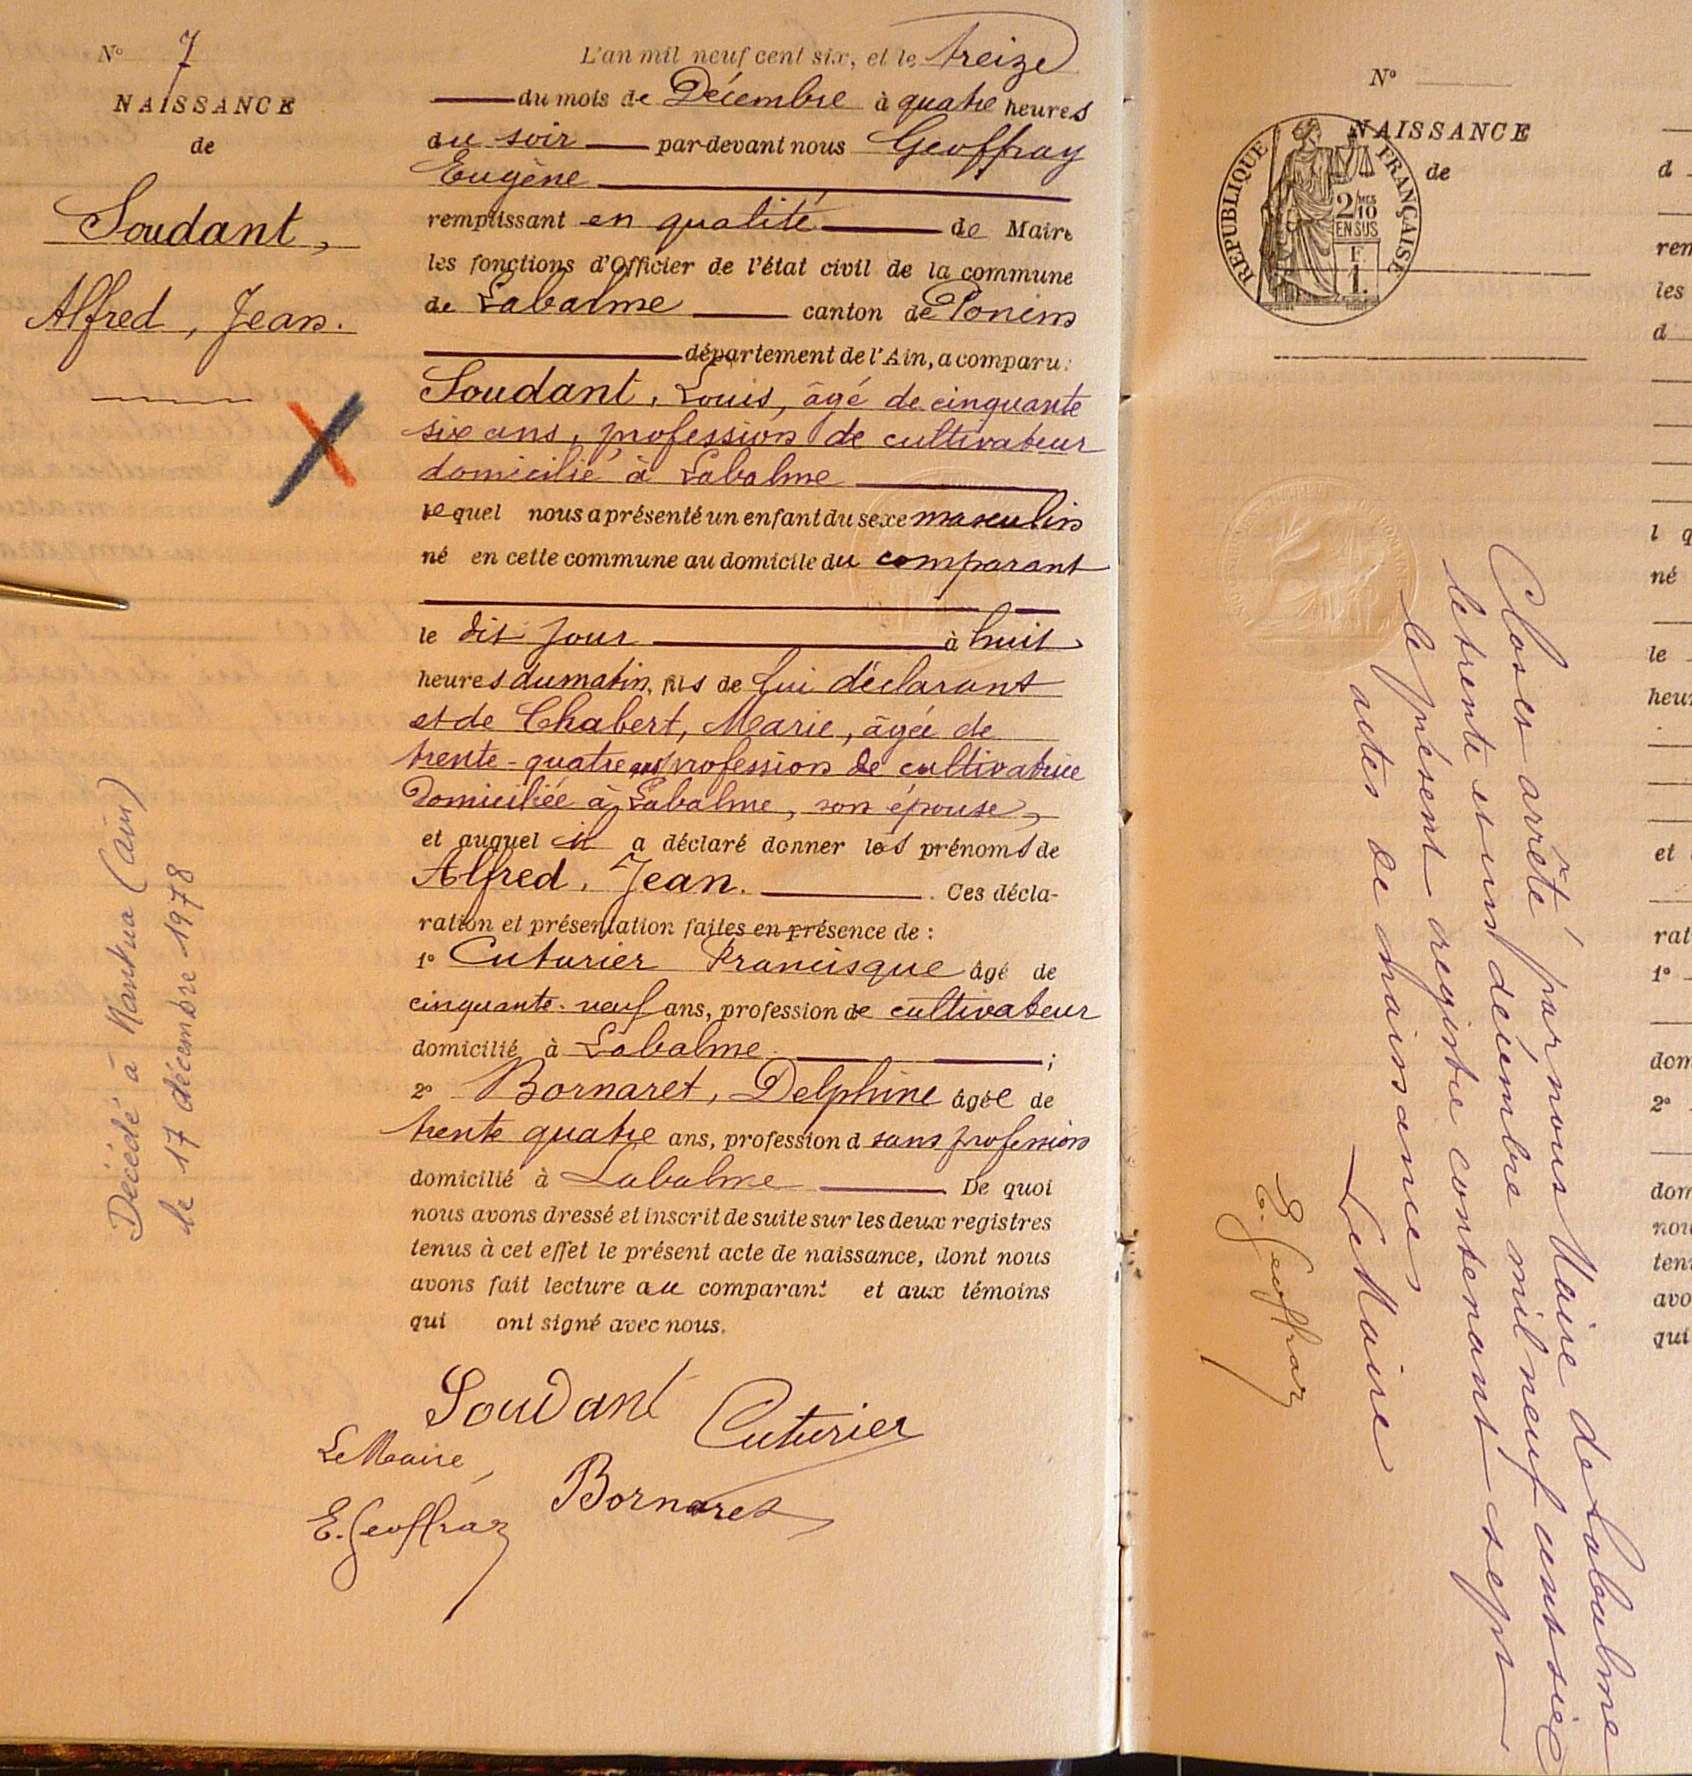 N° 7
NAISSANCE
de
Soudant,
Alfred, Jean.
Décédé à Nantua (Ain)
le 17 décembre 1978
L'an mil neuf cent six, et le treize
du mois de Décembre à quatre heures
du soir par-devant nous Geoffray
Eugène
remplissant en qualité de Maire
les fonctions d'Officier de l'état civil de la commune
de Labalme canton de Poncin
département de l'Ain, a comparu:
Soudant, Louis, âgé de cinquante
six ans, profession de cultivateur
domicilié à Labalme
lequel nous a présenté un enfant du sexe masculin
né en cette commune au domicile du comparant
le dit jour à huit
heures du matin, fils de lui déclarant
et de Chabert, Marie, âgée de
trente-quatre ans profession de cultivatrice
Domiciliée à Labalme, son épouse,
et auquel il a déclaré donner les prénoms de
Alfred, Jean. Ces décla-
ration et présentation faites en présence de :
1° Cuturier Francisque âgé de
cinquante-neuf ans, profession de cultivateur
domicilié à Labalme ;
2° Bornaret, Delphine âgée de
trente quatre ans, profession d sans profession
domicilié à Labalme De quoi
nous avons dressé et inscrit de suite sur les deux registres
tenus à cet effet le présent acte de naissance, dont nous
avons fait lecture au comparant et aux témoins
qui ont signé avec nous.
Soudant
Cuturier
Le Maire,
Bornaret
E. Geoffray
N°
NAISSANCE
de
REPUBLIQUE FRANÇAISE
2/10 MES
EN SUS
F
1.
Clos et arrêté par nous Maire de Labalme
le trente et un décembre mil neuf cent six
le présent registre contenant sept
actes de naissances
Le Maire
E. Geoffray
d
ren
les
d
l q
né
le
heur
et
rat
1°
dom
2°
dom
nou
ten
avo
qui